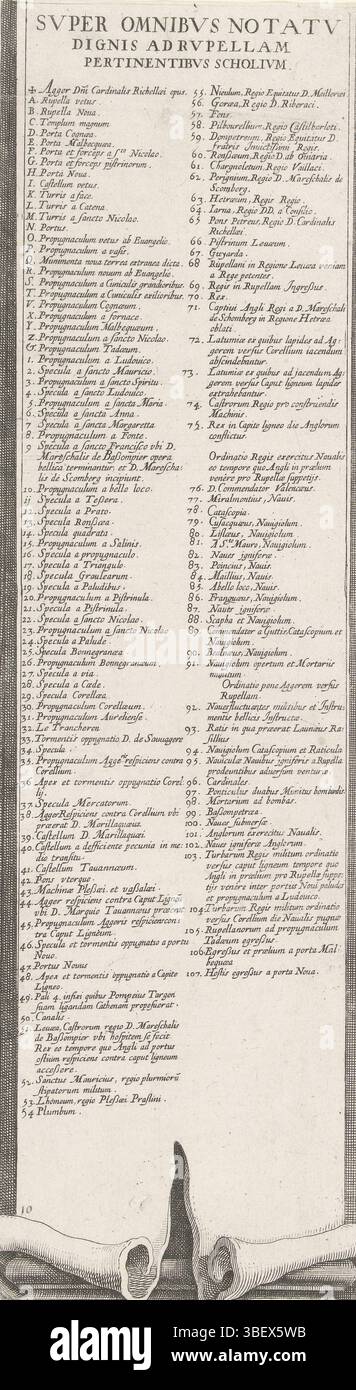 SVPER OMNIBVS NOTATV
DIGNIS AD RVPELLAM
PERTINENTIBVS SCHOLIVM
✠ Agger Dni Cardinalis Richellæi opus.
A. Rupella vetus.
B. Rupella Noua.
C. Templum magnum
D. Porta Cognea.
E. Porta Malbecquea.
F. Porta et forceps a scto Nicolao.
G. Porta et forceps pistrinorum.
H. Porta Noua.
I. Castellum vetus.
K. Turris a face.
L. Turris a Catena.
M. Turris a sancto Nicolao.
N. Portus.
O. Propugnaculum vetus ab Euangelio.
P. Propugnaculum a vasis.
Q. Munimenta noua terra extranea dicta.
R. Propugnaculum nouum ab Euangelio.
S. Propugnaculum a Cuniculis grandioribus.
T. Propugnaculum a Cuniculis exilioribus.
V. Propugnaculum Cogneum.
X. Propugnaculum a fornace.
Y. Propugnaculum Malbequeum.
Z. Propugnaculum a sancto Nicolao
& Propugnaculum Tadæum.
1. Propugnaculum a Ludouico.
2. Specula a sancto Mauricio.
3. Propugnaculum a sancto Spiritu.
4. Specula a sancto Ludouico.
5. Propugnaculum a sancta Maria.
6. Specula a sancta Anna.
7. Specula a sancta Margaretta
8. Propugnaculum a Fonte.
9. Specula a sancto Francisco vbi D.
Mareschalis de Bassompier opera
bellica terminantur, et D. Marescha-
lis de Scomberg incipiunt.
10. Propugnaculum a bello loco.
11. Specula a Tessera.
12. Specula a Prato.
13. Specula Ronsæa.
14. Specula quadrata.
15. Propugnaculum a Salinis.
16. Specula a propugnaculo.
17. Specula a Triangulo.
18. Specula Groulearum.
19. Specula a Paludibus.
20. Propugnaculum a Pistrinula.
21. Specula a Pistrinula.
22. Specula a sancto Nicolao.
23. Propugnaculum a sancto Nicolao
24. Specula a Palude
25. Specula Bonnegranæa
26. Propugnaculum Bonnegranæum
27. Specula a via.
28. Specula a Cade.
29. Specula Corellæa.
30. Propugnaculum Corellæum.
31. Propugnaculum Aurehense.
32. Le Trancheren
33. Tormentis oppugnatio D. de Sauuagere
34. Specula
35. Propugnaculum Aggeris respiciens contra
Corellum.
36. Apex et tormentis oppugnatio Corel
lij.
37. Specula Mercatorum.
38. Agger Respiciens contra Corellum vbi
præerat D. Marillaquæi.
39. Castellum D. Marillaquæi
40. Castellum a defficiente pecunia in me-
dio transitu.
41. Castellum Tauanneum.
42. Pons vterque.
43. Machinæ Plessæi et vassalæi.
44. Agger respiciens contra Caput Ligneum
vbi D. Marquio Tauannæus præerat
45. Propugnaculum Aggeris respiciens con-
tra Caput Ligneum.
46. Specula et tormentis oppugnatio a portu
Nouo.
47. Portus Nouus
48. Apex et tormentis oppugnatio a Capite
Ligneo.
49. Pali 4. infixi quibus Pompeius Targon
suam ligandam Cathenam proposuerat.
50. Canalis.
51. Leuæa, Castrorum regio D. Mareschalis
de Bassompier vbi hospitem se fecit
Rex eo tempore quo Angli ad portus
ostium respiciens contra caput ligneum
accessere.
52. Sanctus Mauricius, regio plurimorū
stipatorum militum.
53. Lhomeum, regio Plessæi Praslini.
54. Plumbum.
55. Niculum, Regio Equitatus D. Meilloræi
56. Goræa, Regio D. Riberaci.
57. Fons.
58. Pilbourellium, Regio Castilbarloti.
59. Dompetreum, Regio Equitatus D.
fratris Inuictissimi Regis.
60. Ronsæum, Regio D. ab Oinaria.
61. Chargnoleum, Regio Vaillaci.
62. Perignium, Regio D. Mareschalis de
Scomberg.
63. Hetræum, Regis Regio
64. Iarna, Regio DD. a Consilio.
65. Pons Petreus, Regio D. Cardinalis
Richellæi.
66. Pistrinum Leuæum.
67. Guyarda.
68. Rupellani in Regione Leuæa veniam
a Rege petentes.
69. Regis in Rupellam Ingressus.
70. Rex.
71. Captiui Angli Regi a D. Mareschali
de Schomberg in Regione Hetræa
oblati.
72. Latumiæ ex quibus lapides ad Ag-
gerem versus Corellium iacendum
abscindebantur.
73. Latumiæ ex quibus ad jacendum Ag-
gerem versus Caput ligneum lapides
extrahebantur.
74. Castrorum Regio pro construendis
Machinis.
75. Rex in Capite ligneo dū Anglorum
conflictus.
Ordinatio Regis exercitus Naualis
eo tempore quo Angli in prælium
venere pro Rupellæ suppetijs.
76. D. Commendator Valencæus.
77. Miralmontius, Nauis.
78. Catascopia.
79. Cusacquæus, Nauigium.
80. Lislæus, Nauigiolum.
81. A Scto Mauro, Nauigiolum.
82. Naues igniferæ
83. Poincius, Nauis.
84. Maillius, Nauis.
85. Abello loco, Nauis.
86. Franquæus, Nauigiolum.
87. Naues igniferæ
88. Scapha et Nauigiolum.
89. Commendator a Guttis Catascopum et
Nauigiolum.
90. Nauigiolum.
91. Nauigiolum opertum et Mortarijs
munitum
Ordinatio pone Aggerem versus
Rupellam.
92. Naues fluctuantes militibus et Instru-
mentis bellicis Instructæ
93. Ratis in qua præerat Launæus Ra-
sillius
94. Nauigiolum Catascopum et Raticula
95. Nauiculæ Nauibus igniferis a Rupella
prodeuntibus aduersum venturæ
96. Cardinales.
97. Ponticulus duabus Munitus bombardis
98. Mortarum ad bombas.
99. Bassompetræa.
100. Naues submersæ.
101. Anglorum exercitus Naualis.
102. Naues igniferæ Anglorum.
103. Turbarum Regis militum ordinatio
versus caput ligneum tempore quo
Angli in prælium pro Rupellæ suppe-
tijs venere inter portus Noui paludes
et propugnaculum a Ludouico.
104. Turbarum Regis militum ordinatio
versus Corellum die Naualis pugnæ
105. Rupellanorum ad propugnaculum
Tadæum egressus.
106. Egressus et prælium a porta Mal-
bequæa
107. Hostis egressus a porta Noua.
10
alamy
Image ID: 3BEX5WB
www.alamy.com